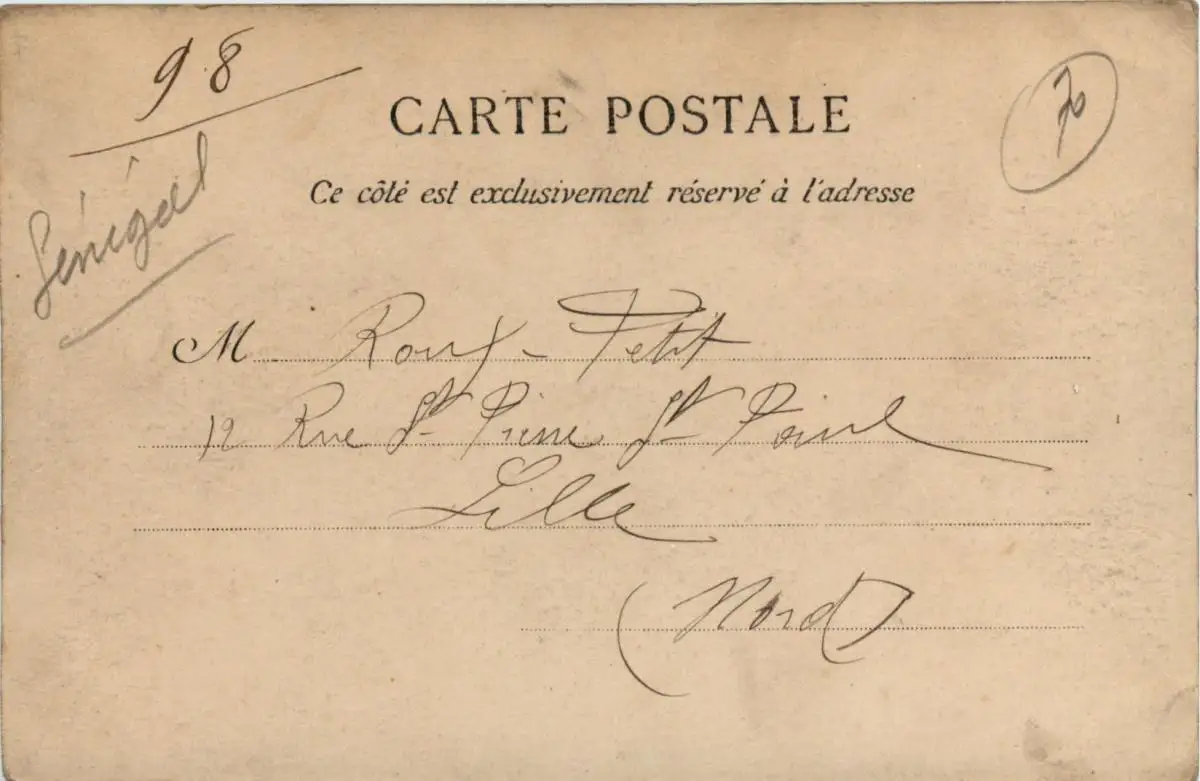 98
CARTE POSTALE
70
Ce côté est exclusivement réservé à l'adresse
Sénégal
M Roux-Petit
12 Rue St Pierre St
Lille
(Nord)